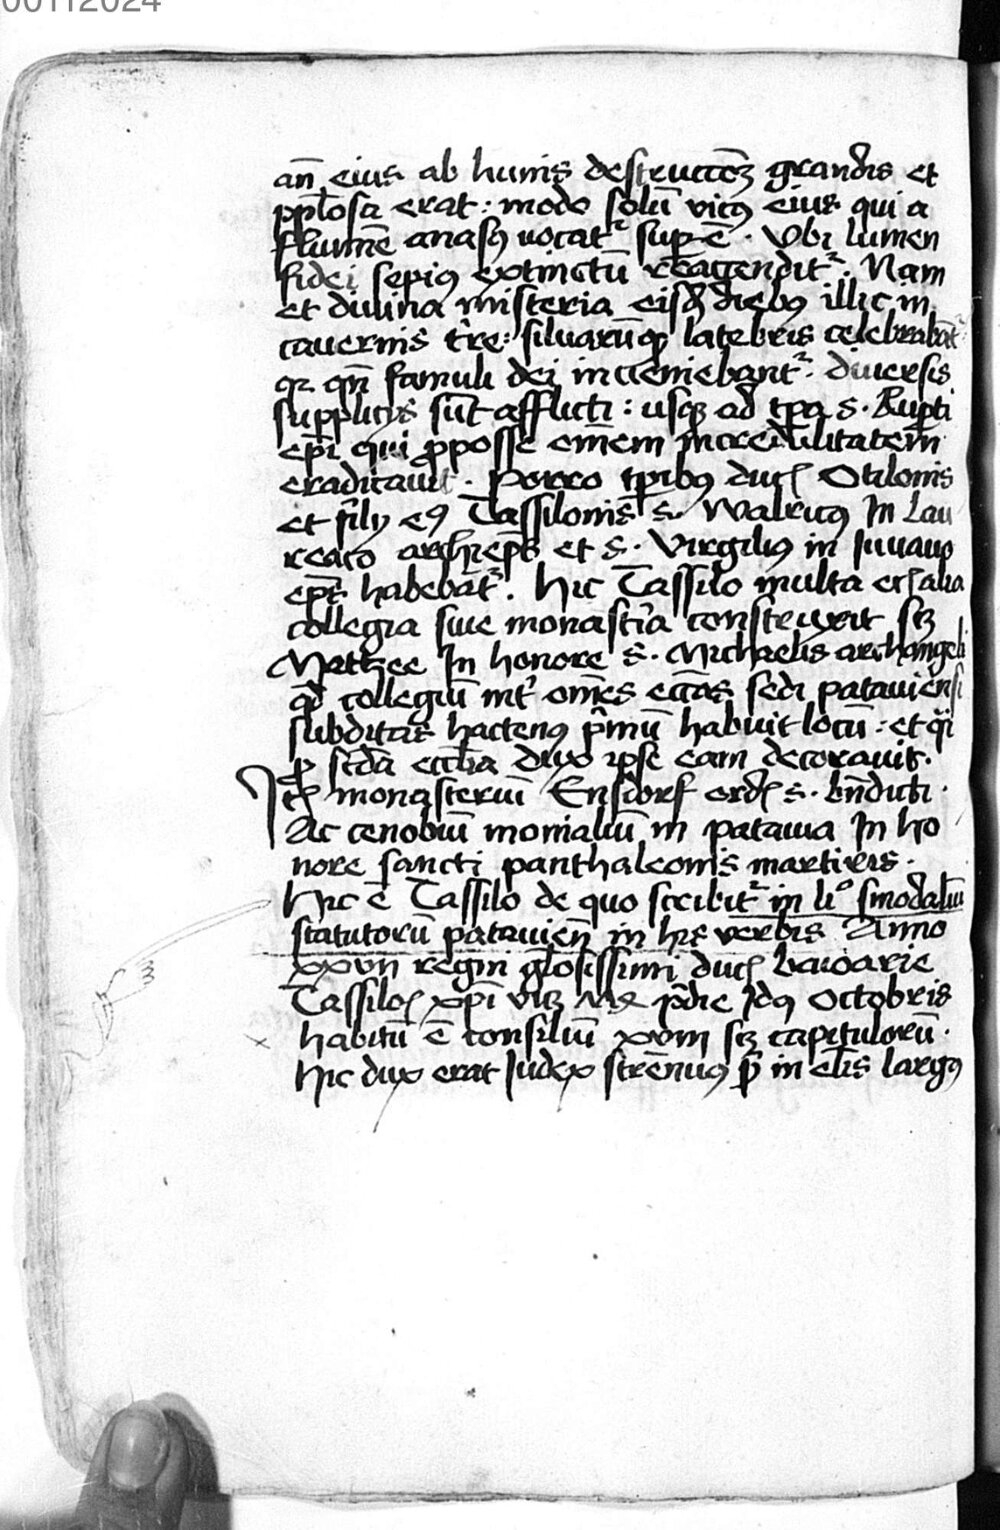 00112024
an̄ eius ab hunis destructōꝫ grandis et
pp̄losa erat : modo solū vicꝰ eius qui a
flumīe anasꝰ uocatᷣ sup ē . Vbi lumen
fidei sepiꝰ extinctū reaccenditᷣ . Nam
et diuina misteria eisdē diebꝰ illic in
cauernis t̄re : siluarūqꝫ latebris celebrabātᷣ
qꝛ qn̄ famuli dei inueniebantᷣ . diuersis
supplicijs sūt afflicti : usqꝫ ad tꝑa s . Rupti
ep̄i qui ꝓposse em̄em incredulitatem
eradicauit . Porro tꝑibꝰ duc̄ Otilonis
et filij eꝰ Tassilonis s . Walricꝰ In Lau
reaco archiep̄s et s . Virgiliꝰ in Iuuauo
ep̄i habebātᷣ . Hic Tassilo multa et alia
collegia siue monast̄ia construxit scꝫ
Mattzee In honore s . Michaelis archangeli
qd̄ collegiū int̄ om̄es ecc̄ias sedi patauien̄si
subditas hactenꝰ p̄mū habuit locū : et qͥ
ꝙ sc̄dā eccl̄ia dux ipse eam decorauit .
Itē monasteriū Ensdorf ord̄ s . bn̄dicti .
Ac cenobiū monialiū in patauia In ho
nore sancti panthaleonis martiris .
Hic ē Tassilo de quo scribitᷣ in liͦ sinodaliū
statutorū patauien̄ in his verbis Anno
xxvij regni gl̄osissimi duc̄ bauoarie
Tassilōs xp̄i p̄die Idꝰ Octobris
habitū ē consiliū xviij scꝫ capitulorū .
Hic dux erat Iudex strēnuꝰ in el̄is largꝰ